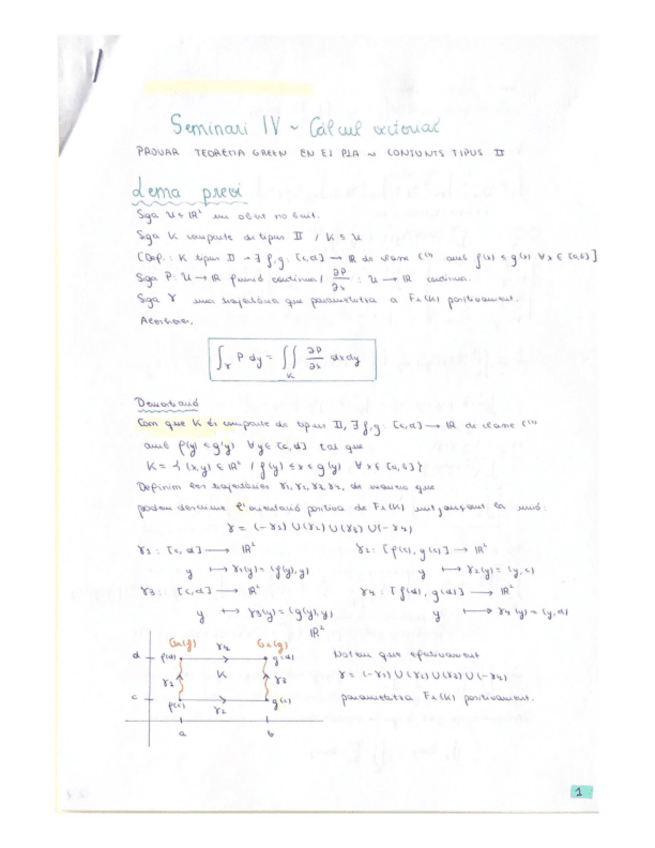 Seminari IV ~ Càlcul vectorial
PROVAR TEOREMA GREEN EN EL PLA ~ CONJUNTS TIPUS II
Lema previ
Siga U ⊆ ℝ² un obert no buit.
Siga K compacte de tipus II / K ⊆ U
[Def.: K tipus II → ∃ f,g: [c,d] → ℝ de classe C⁽¹⁾ amb f(x) ≤ g(x) ∀x ∈ [a,b]]
Siga P: U → ℝ funció contínua / ∂P/∂x : U → ℝ contínua.
Siga γ una trajectòria que parametritza a Fr(K) positivament.
Aleshores,
∫_γ P dy = ∬_K ∂P/∂x dxdy
Demostració
Com que K és compacte de tipus II, ∃ f,g: [c,d] → ℝ de classe C⁽¹⁾
amb f(y) ≤ g(y) ∀y ∈ [c,d] tal que
K = {(x,y) ∈ ℝ² / f(y) ≤ x ≤ g(y) ∀x ∈ [a,b]}
Definim les trajectòries γ1, γ2, γ3, γ4, de manera que
podem descriure l'orientació positiva de Fr(K) mitjançant la unió:
γ = (-γ1) ∪ (γ2) ∪ (γ3) ∪ (-γ4)
γ1 : [c,d] → ℝ² γ2 : [f(c), g(c)] → ℝ²
y ↦ γ1(y) = (f(y), y) y ↦ γ2(y) = (y, c)
γ3 : [c,d] → ℝ² γ4 : [f(d), g(d)] → ℝ²
y ↦ γ3(y) = (g(y), y) y ↦ γ4(y) = (y, d)
ℝ²
Gr(f) γ4 Gr(g)
d f(d) g(d)
γ1 K γ3
c f(c) γ2 g(c)
a b
Notem que efectivament
γ = (-γ1) ∪ (γ2) ∪ (γ3) ∪ (-γ4)
parametritza Fr(K) positivament.
1